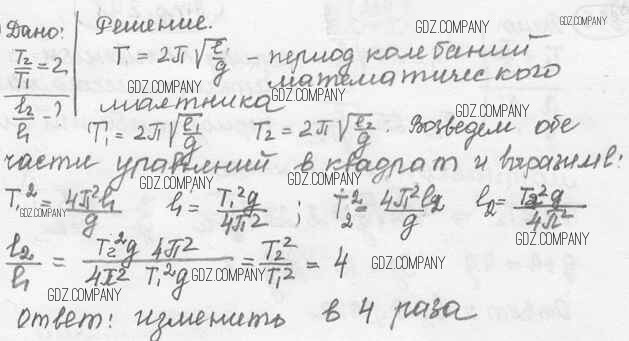 Дано: Решение.
T₂/T₁ = 2 T = 2π√(l/g) – период колебаний
l₂/l₁ – ? математического
маятника
T₁ = 2π√(l₁/g) T₂ = 2π√(l₂/g). Возведем обе
части уравнений в квадрат и выразим l:
T₁² = 4π²l₁/g l₁ = T₁²g/4π² ; T₂² = 4π²l₂/g l₂ = T₂²g/4π²
l₂/l₁ = T₂²g/4π² 4π²/T₁²g = T₂²/T₁² = 4
Ответ: изменить в 4 раза
GDZ.COMPANY
GDZ.COMPANY
GDZ.COMPANY
GDZ.COMPANY
GDZ.COMPANY
GDZ.COMPANY
GDZ.COMPANY
GDZ.COMPANY
GDZ.COMPANY
GDZ.COMPANY
GDZ.COMPANY
GDZ.COMPANY
GDZ.COMPANY
GDZ.COMPANY